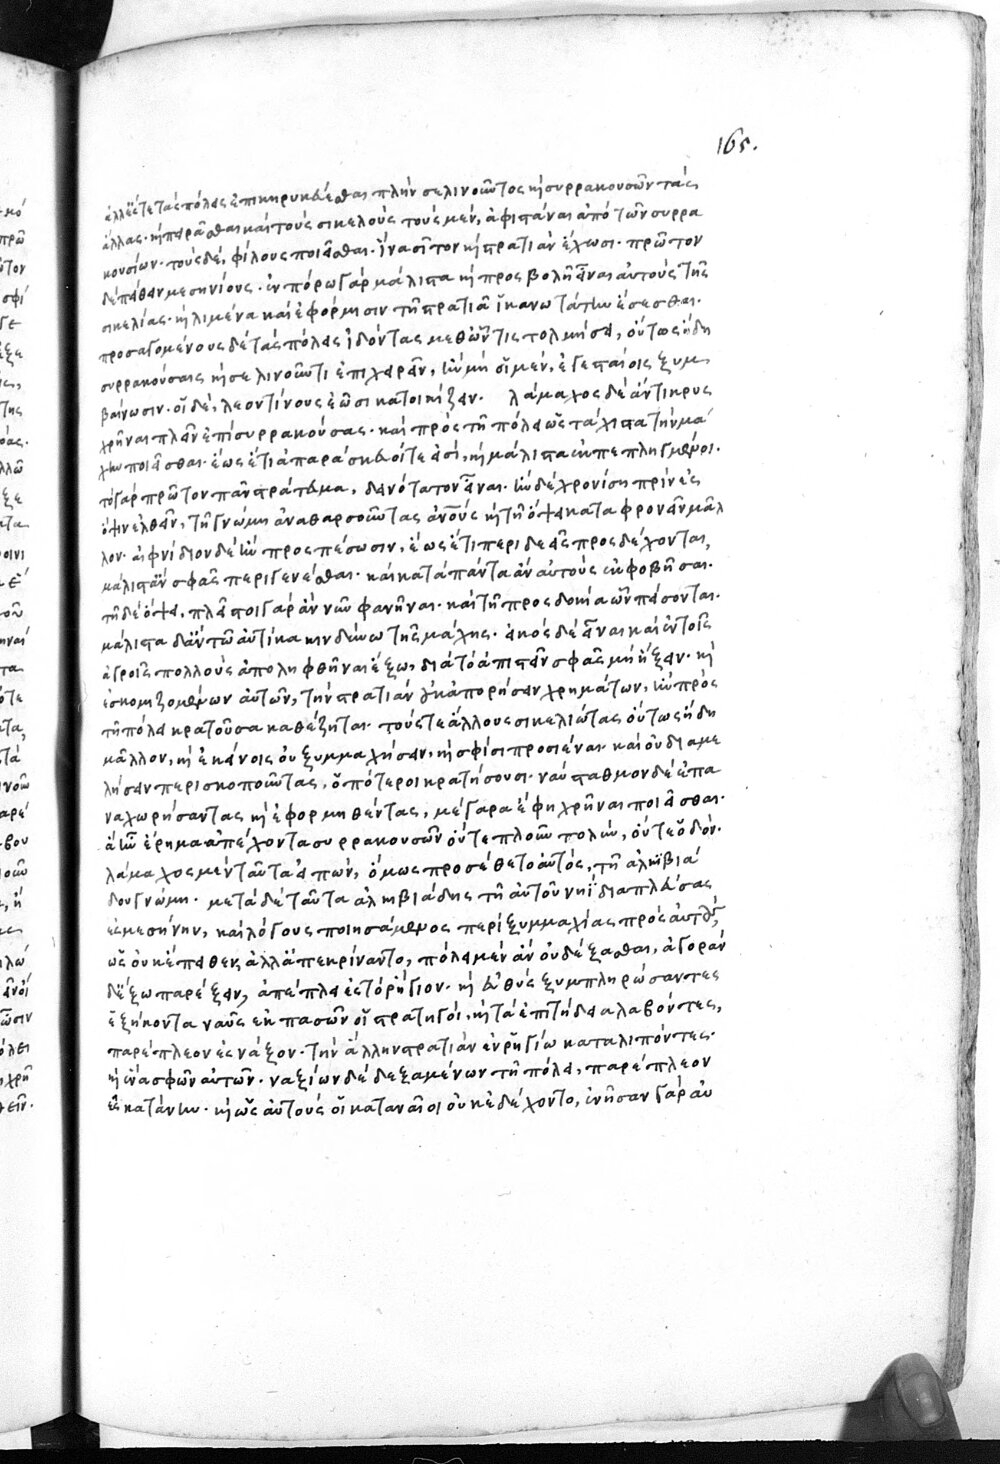 ἀλλ' ἔς τε τὰς πόλεις ἐπικηρυκεύεσθαι πλὴν σελινοῦντος καὶ συρρακουσῶν τὰς
ἄλλας· καὶ πειρᾶσθαι καὶ τοὺς σικελοὺς τοὺς μὲν, ἀφιστάναι ἀπὸ τῶν συρρα
κουσίων· τοὺς δὲ, φίλους ποιεῖσθαι· ἵνα σῖτον καὶ στρατιὰν ἔχωσι· πρῶτον
δὲ πείθειν μεσηνίους· ἐν πόρω γὰρ μάλιστα καὶ προσβολῆ εἶναι αὐτοὺς τῆς
σικελίας· καὶ λιμένα καὶ ἐφόρμησιν τῆ στρατιᾶ ἱκανωτάτην ἔσεσθαι·
προσαγομένους δὲ τὰς πόλεις εἰδότας μεθ' ὧν τις πολεμήσει, οὕτως ἤδη
συρρακούσαις καὶ σελινοῦντι ἐπιχειρεῖν, ἢν μὴ οἱ μὲν, ἐγεσταίοις ξυμ
βαίνωσιν· οἱ δὲ, λεοντίνους ἐῶσι κατοικίζειν· λάμαχος δὲ ἄντικρυς
χρῆναι πλεῖν ἐπὶ συρρακούσας· καὶ πρὸς τῆ πόλει ὡς τάχιστα τὴν μά
χην ποιεῖσθαι· ἕως ἔτι ἀπαράσκευοί τε εἰσὶ, καὶ μάλιστα ἐκπεπληγμένοι·
τὸ γὰρ πρῶτον πᾶν στράτευμα, δεινότατον εἶναι· ἢν δὲ χρονίση πρὶν ἐς
ὄψιν ἐλθεῖν, τῆ γνώμη ἀναθαρσοῦντας ἀν̅ους καὶ τῆ ὄψει καταφρονεῖν μᾶλ
λον· αἰφνίδιον δὲ ἢν προσπέσωσιν, ἕως ἔτι περιδεεῖς προσδέχονται,
μάλιστ' ἂν σφεῖς περιγενέσθαι· καὶ κατὰ πάντα ἂν αὐτοὺς ἐκφοβῆσαι·
τῆ δὲ ὄψει, πλεῖστοι γὰρ ἂν νῦν φανῆναι· καὶ τῆ προσδοκία ὧν πείσονται·
μάλιστα δ' ἂν τῶ αὐτίκα κινδύνω τῆς μάχης· εἰκὸς δὲ εἶναι καὶ ἐν τοῖς
ἀγροῖς πολλοὺς ἀποληφθῆναι ἔξω, διὰ τὸ ἀπιστεῖν σφᾶς μὴ ἥξειν· καὶ
ἐσκομιζομένων αὐτῶν, τὴν στρατιὰν οὐκ ἀπορήσειν χρημάτων, ἢν πρὸς
τῆ πόλει κρατοῦσα καθέζηται· τούς τε ἄλλους σικελιώτας οὕτως ἤδη
μᾶλλον, καὶ ἐκείνοις οὐ ξυμμαχήσειν, καὶ σφίσι προσιέναι· καὶ οὐ διαμε
λήσειν περισκοποῦντας, ὁπότεροι κρατήσουσι· ναύσταθμον δὲ ἐπα
ναχωρήσαντας καὶ ἐφορμηθέντας, μέγαρα ἔφη χρῆναι ποιεῖσθαι·
ἃ ἦν ἔρημα ἀπέχοντα συρρακουσῶν οὔτε πλοῦν πολὺν, οὔτε ὁδόν·
λάμαχος μὲν ταῦτα εἰπὼν, ὅμως προσέθετο αὐτὸς, τῆ ἀλκιβιά
δου γνώμη· μετὰ δὲ ταῦτα ἀλκιβιάδης τῆ αὑτοῦ νηῒ διαπλεύσας
ἐς μεσήνην, καὶ λόγους ποιησάμενος περὶ ξυμμαχίας πρὸς αὐτοὺς,
ὡς οὐκ ἔπειθεν, ἀλλ' ἀπεκρίναντο, πόλει μὲν ἂν οὐ δέξασθαι, ἀγορὰν
δ' ἔξω παρέξειν, ἀπέπλει ἐς τὸ ῥήγιον· καὶ εὐθὺς ξυμπληρώσαντες
ἑξήκοντα ναῦς ἐκ πασῶν οἱ στρατηγοὶ, καὶ τὰ ἐπιτήδεια λαβόντες,
παρέπλεον ἐς νάξον· τὴν ἄλλην στρατιὰν ἐν ῥηγίω καταλιπόντες·
καὶ ἕνα σφῶν αὐτῶν· ναξίων δὲ δεξαμένων τῆ πόλει, παρέπλεον
ἐς κατάνην· καὶ ὡς αὐτοὺς οἱ καταναῖοι οὐκ ἐδέχοντο, ἐνῆσαν γὰρ αὐ
165.